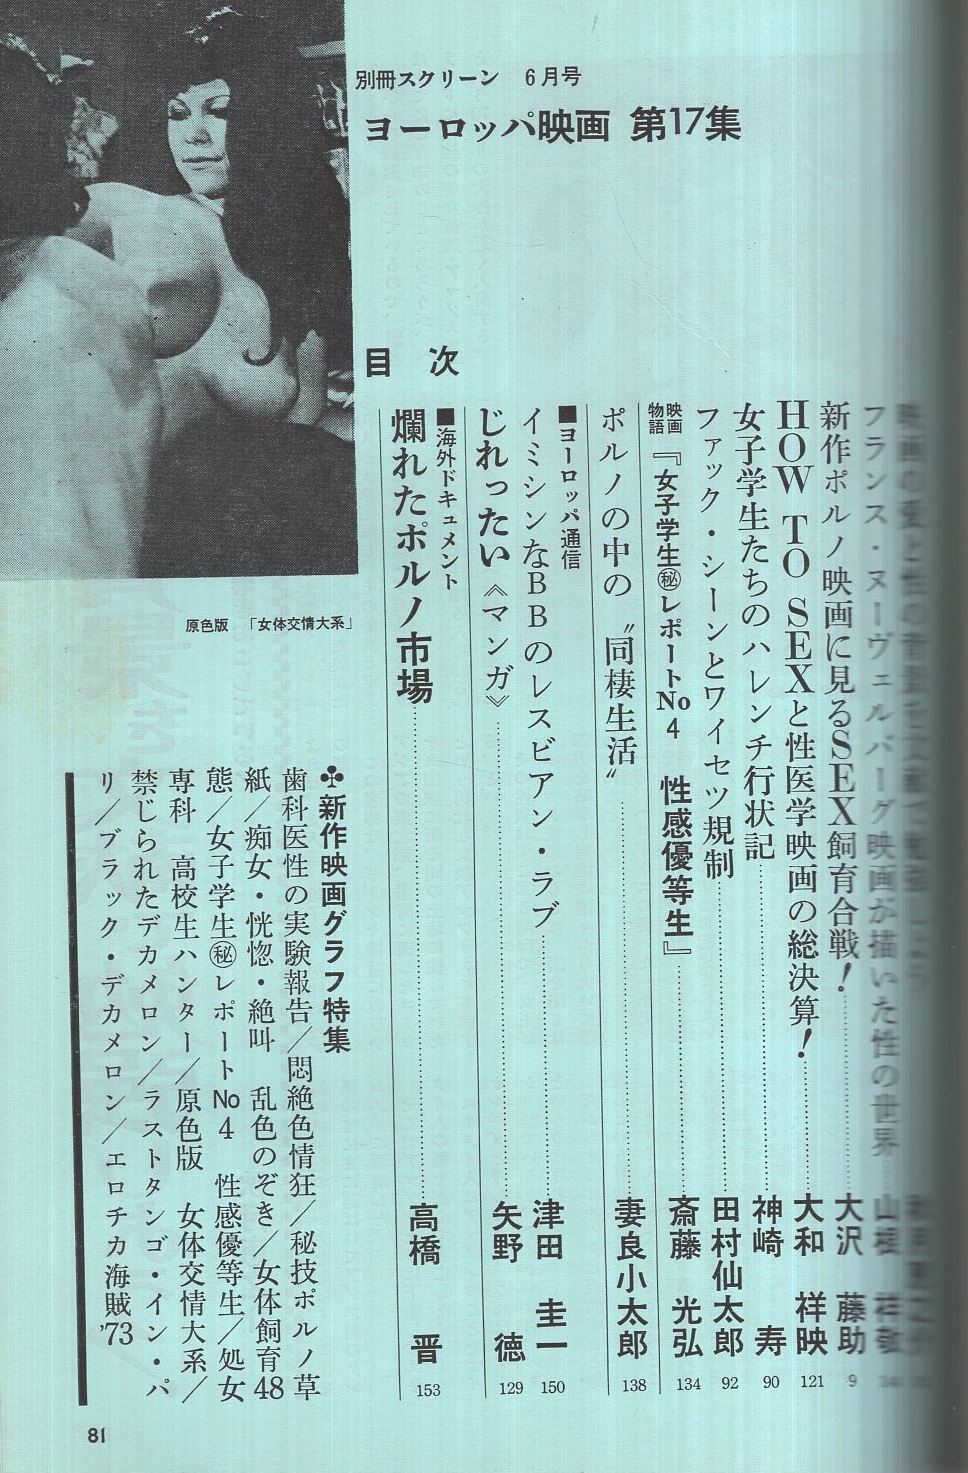 別冊スクリーン　6月号
ヨーロッパ映画 第17集
目　次
フランス・ヌーヴェルバーグ映画が描いた性の世界……山根　祥敬
新作ポルノ映画に見るSEX飼育合戦！……大沢　藤助　9
HOW TO SEXと性医学映画の総決算！……大和　祥映　121
女子学生たちのハレンチ行状記……神崎　寿　90
ファック・シーンとワイセツ規制……田村仙太郎　92
映画物語『女子学生㊙レポートNo4　性感優等生』……斎藤　光弘　134
ポルノの中の〝同棲生活〟……妻良小太郎　138
■ヨーロッパ通信
イミシンなBBのレスビアン・ラブ……津田　圭一　150
じれったい《マンガ》……矢野　徳　129
■海外ドキュメント
爛れたポルノ市場……高橋　晋　153
原色版　「女体交情大系」
♣新作映画グラフ特集
歯科医性の実験報告／悶絶色情狂／秘技ポルノ草
紙／痴女・恍惚・絶叫　乱色のぞき／女体飼育48
態／女子学生㊙レポートNo4　性感優等生／処女
専科　高校生ハンター／原色版　女体交情大系／
禁じられたデカメロン／ラストタンゴ・イン・パ
リ／ブラック・デカメロン／エロチカ海賊'73
81